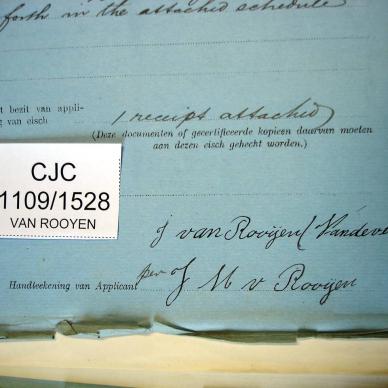 forth in the attached schedule
t bezit van appli-
g van eisch
1 receipt attached
(Deze documenten of gecertificeerde kopicen daarvan moeten
aan dezen eisch gehecht worden.)
CJC
1109/1528
VAN ROOYEN
J van Rooijen (Vandeve
Handteekening van Applicant per J M v Rooijen